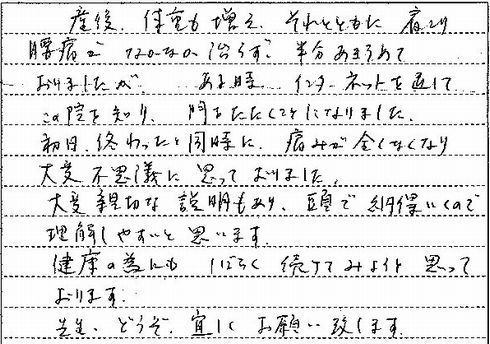 産後、体重も増え、それとともに肩こり
腰痛がなかなか治らず、半分あきらめて
おりましたが、ある時インターネットを通して
この院を知り、門をたたくことになりました。
初日、終わったと同時に、痛みが全くなくなり
大変不思議に思っておりました。
大変親切な説明もあり、頭で納得いくので
理解しやすいと思います。
健康の為にも しばらく続けてみようと思って
おります。
先生、どうぞ、宜しくお願い致します。